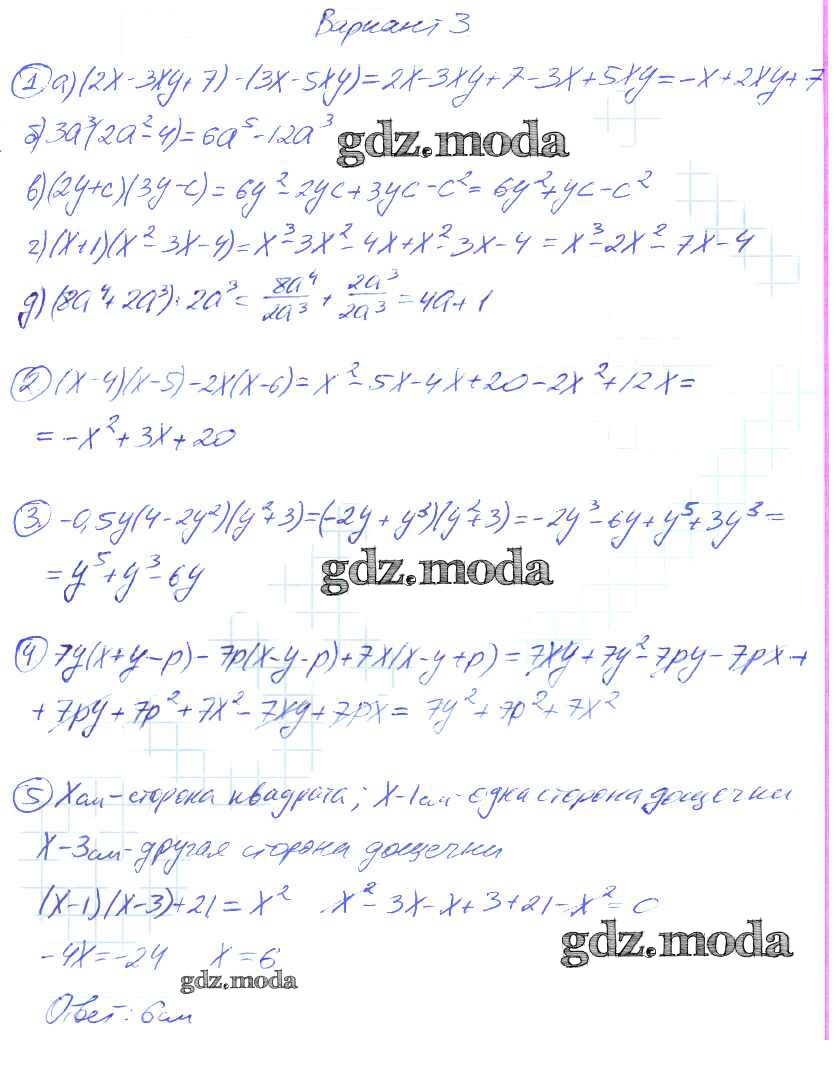 Вариант 3
① а) (2x-3xy+7)-(3x-5xy)=2x-3xy+7-3x+5xy=-x+2xy+7
б) 3a³(2a²-4)=6a⁵-12a³
gdz.moda
в) (2y+c)(3y-c)=6y²-2yc+3yc-c²=6y²+yc-c²
г) (x+1)(x²-3x-4)=x³-3x²-4x+x²-3x-4=x³-2x²-7x-4
д) (8a⁴+2a³):2a³=8a⁴/2a³+2a³/2a³=4a+1
② (x-4)(x-5)-2x(x-6)=x²-5x-4x+20-2x²+12x=
=-x²+3x+20
③. -0,5y(4-2y²)(y²+3)=(-2y+y³)(y²+3)=-2y³-6y+y⁵+3y³=
=y⁵+y³-6y
gdz.moda
④ 7y(x+y-p)-7p(x-y-p)+7x(x-y+p)=7xy+7y²-7py-7px+
+7py+7p²+7x²-7xy+7px=7y²+7p²+7x²
⑤ Xсм-сторона квадрата; x-1см-одна сторона дощечки
x-3см-другая сторона дощечки
(x-1)(x-3)+21=x² x²-3x-x+3+21-x²=0
-4x=-24 x=6
gdz.moda
gdz.moda
Ответ: 6см